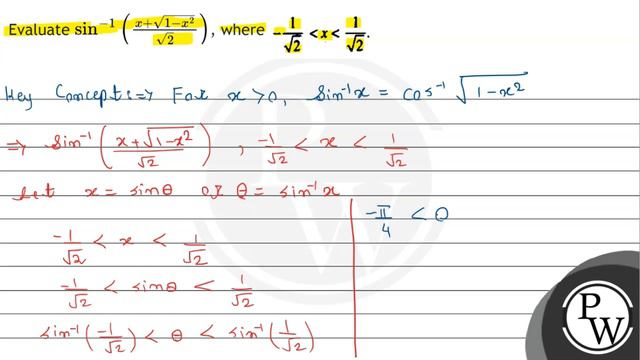 Evaluate sin⁻¹ ((x+√(1−x²))/√2), where −1/√2 < x < 1/√2.
Key Concept :=> For x > 0, sin⁻¹x = cos⁻¹ √(1−x²)
=> sin⁻¹ ((x+√(1−x²))/√2) , −1/√2 < x < 1/√2
Let x = sinθ or θ = sin⁻¹x
−1/√2 < x < 1/√2
−1/√2 < sinθ < 1/√2
sin⁻¹(−1/√2) < θ < sin⁻¹(1/√2)
−π/4 < θ
PW
PW